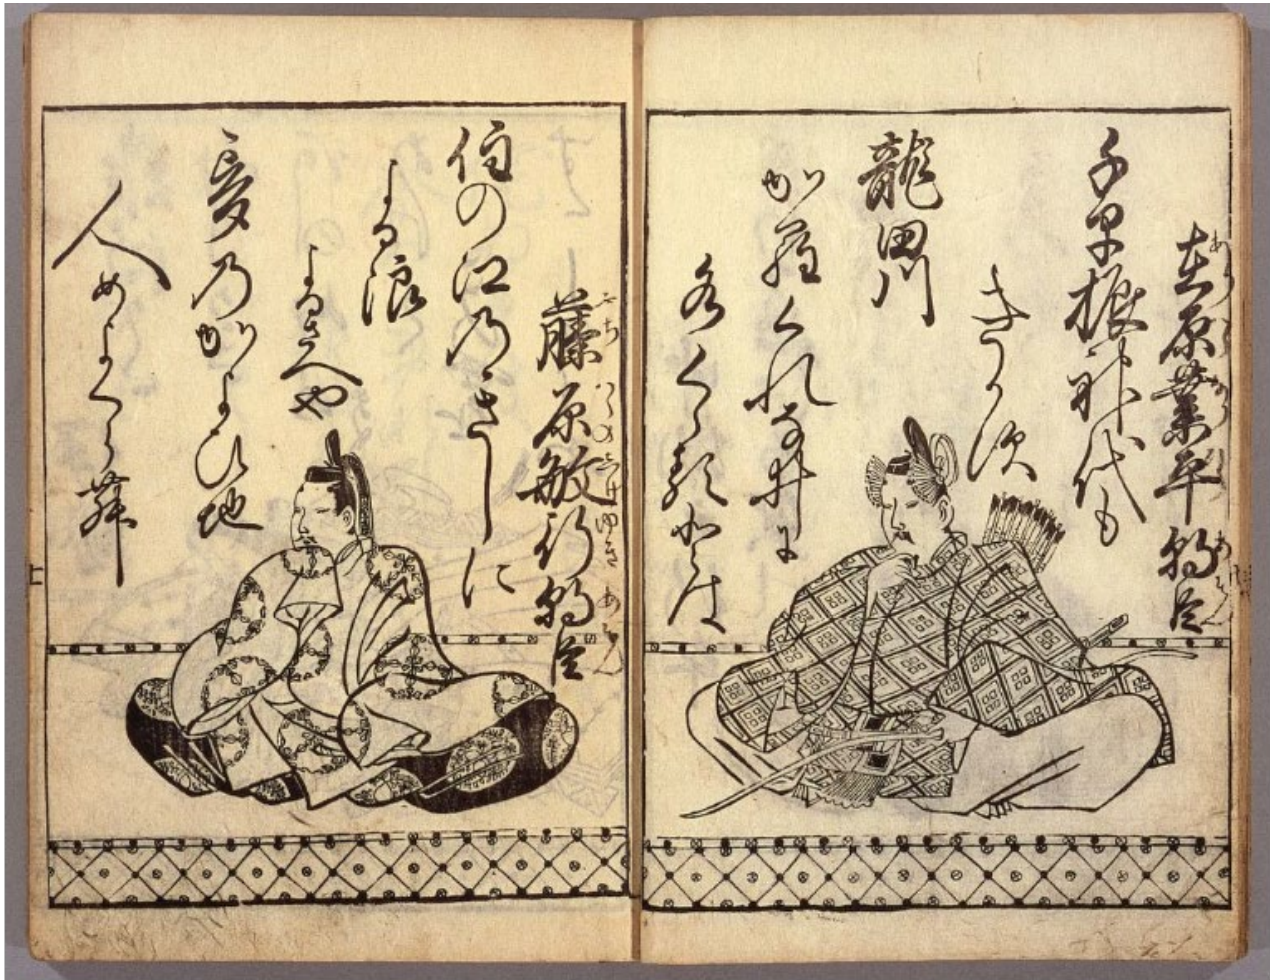 在原業平朝臣
千早振神代も
きかす
龍田川
から くれな井に
水くゝるとは
藤原敏行朝臣
住の江乃きしに
よる浪
よるさへや
夢乃かよひ地
人めよくら舞
上